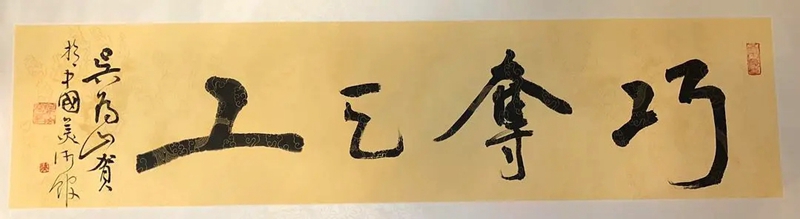 巧奪天工
吳為山賀
於中國美術館